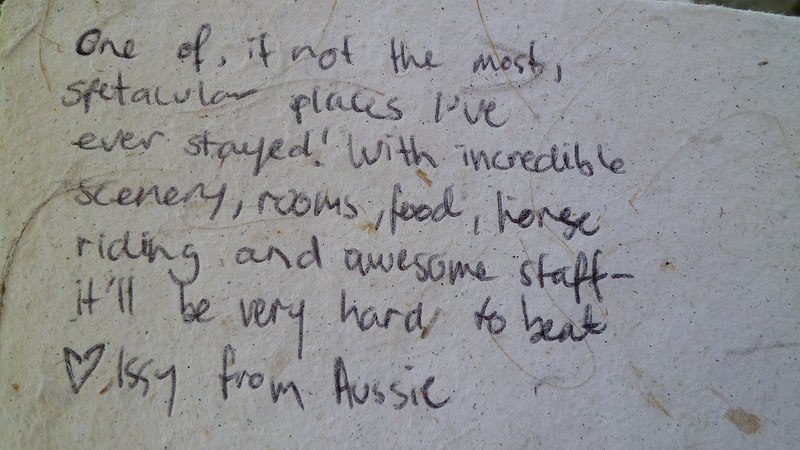 One of, if not the most,
spetacular places I've
ever stayed! With incredible
scenery, rooms, food, horse
riding and awesome staff-
it'll be very hard to beat
♡ Issy from Aussie